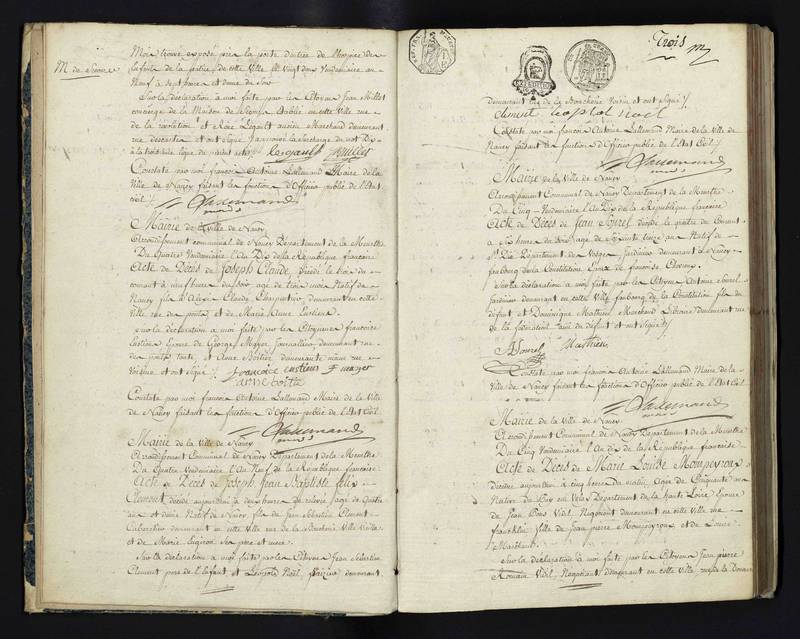 M de Seoure
Mois trouvé exposé près la porte d'entrée de l'hospice des
Enfants de la patrie de cette Ville le Vingt deux Vendemiaire an
Neuf à sept heures et demie du soir
Sur la déclaration à moi faite par les Citoyens Jean Millot
concierge de la Maison de établie en cette Ville rue
de la Révolution et René Legault ancien Marchand demeurant
rue Descartes et ont Signé
Constaté par moi françois Antoine Lallemand Maire de la
Ville de Nancy faisant les fonctions d'Officier public de l'Etat
civil /. Lallemand
Mairie de la Ville de Nancy
Arrondissement communal de Nancy Département de la Meurthe
Du Quatre Vendemiaire l'An Dix de la République française
Acte de Décès de Joseph Claude, décédé le trois du
courant à neuf heures du soir agé de trois mois Natif de
Nancy fils d'Alexis Claude Charpentier demeurant en cette
Ville rue des ponts et de Marie Anne
Sur la déclaration à moi faite par les Citoyennes françoise
Epouse de George Mayer Journalier demeurant rue
des ponts tante, et Anne Boitte demeurante même rue
Voisine et ont signé /.
françoise mayer
anne boitte
Constaté par moi françois Antoine Lallemand Maire de la Ville
de Nancy faisant les fonctions d'Officier public de l'Etat Civil
Lallemand
Mairie de la Ville de Nancy
Arrondissement Communal de Nancy Département de la Meurthe
Du Quatre Vendemiaire l'An de la République française
Acte de Décès de Joseph Jean Baptiste felix
Clement décédé aujourd'hui à deux heures de relevée, agé de Quatre
ans et demie Natif de Nancy, fils de Jean Sébastien Clement
Cabaretier demeurant en cette Ville rue de la Boucherie Ville Vieille
et de Marie ses père et mère.
Sur la déclaration à moi faite par les Citoyens Jean Sébastien
Clement père de l'enfant et Léopold Noël, demeurant
Trois
demeurant rue de la Boucherie Voisin et ont signé /.
Clement Leopold noël
Constaté par moi françois Antoine Lallemand Maire de la Ville de
Nancy faisant les fonctions d'Officier public de l'Etat Civil /.
Lallemand
Mairie de la Ville de Nancy
Arrondissement Communal de Nancy Département de la Meurthe
Du Cinq Vendemiaire l'An Dix de la République française
Acte de Décès de Jean décédé le quatre du Courant
à six heures du soir, agé de Soixante treize ans Natif de
Département des Vosges Jardinier demeurant à Nancy
faubourg de la Constitution Epoux de françoise
Sur la déclaration à moi faite par les Citoyens Antoine
Jardinier demeurant en cette Ville faubourg de la Constitution fils du
défunt et Dominique Mathieu Marchand Libraire demeurant rue
de la fédération ami du défunt et ont Signé /.
Mathieu
Constaté par moi françois Antoine Lallemand Maire de la
Ville de Nancy faisant les fonctions d'Officier public de l'Etat Civil
Lallemand
Mairie de la Ville de Nancy
Arrondissement Communal de Nancy Département de la Meurthe
Du Cinq Vendemiaire l'An Dix de la République française
Acte de Décès de Marie Louise Mompeyroux
décédée aujourd'hui à cinq heures du matin, agée de Cinquante ans
Native du Puy en Velay Département de la haute Loire Epouse
de Jean Vidal Négociant demeurant en cette Ville rue
franklin fille de Jean pierre Mompeyroux et de Louise
Sur la déclaration à moi faite par les Citoyens Jean pierre
Romain Vidal, Négociant demeurant en cette Ville, rue de la Douane